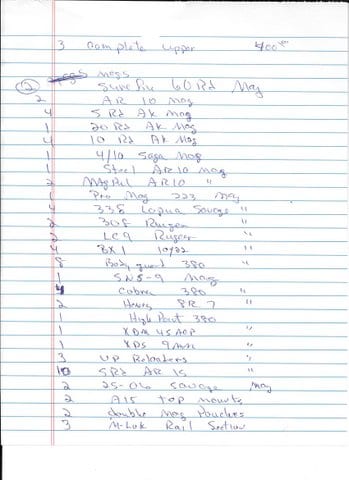 3 Complete upper 400
mags
2 Surefire 60 Rd Mag
2 AR 10 mag
4 5 Rd AK mag
1 20 Rd AK Mag
4 10 Rd AK Mag
1 4/10 Saga Mag
1 Steel AR10 mag
2 MAgPul AR10 "
Pro Mag 223 mag
4 338 Lapua Savage "
2 308 Ruger "
2 LC9 Ruger "
4 BX1 10/22 "
8 Body guard 380 "
1 Mag
4 Cobra 380 "
2 Henry 8R. 7 "
1 High Point 380
1 XDM 45 ACP "
1 XDS 9mm "
3 UP Reloaders "
10 5Rd AR 15 "
2 25-06 Savage mag
2 A15 TOP mounts
2 double Mag Pouches
3 M-Lok Rail Section